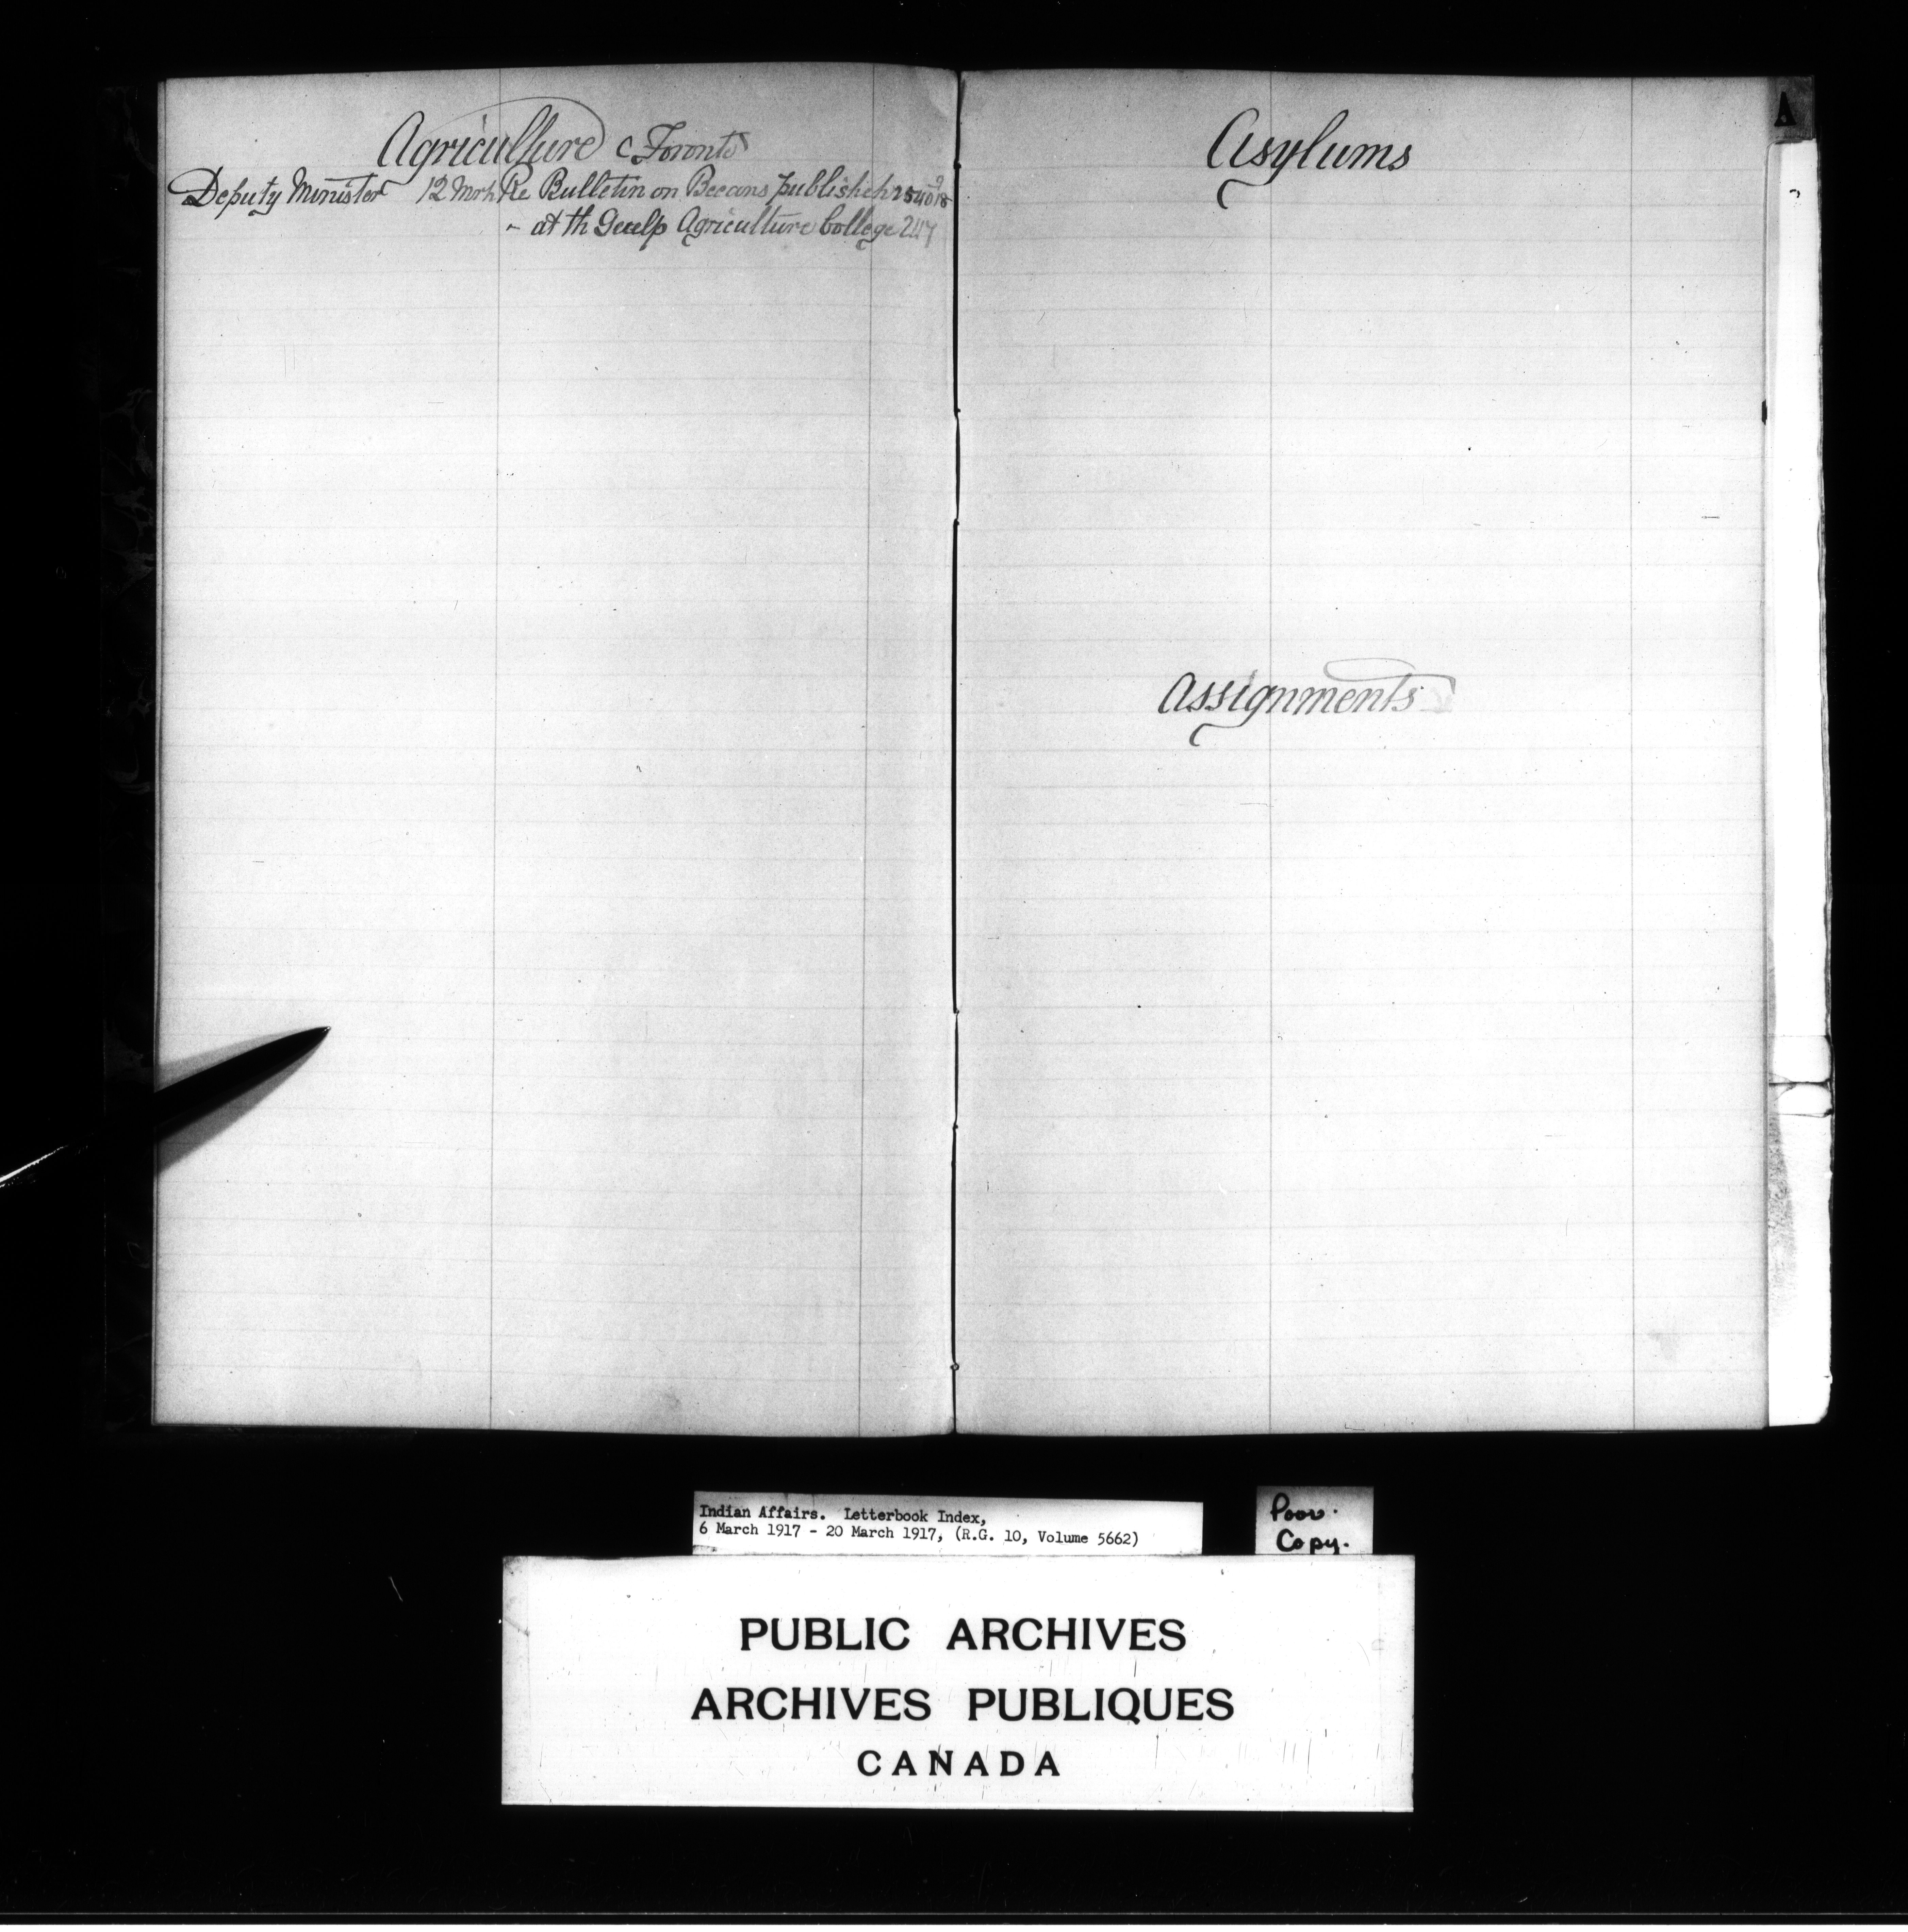 Agriculture Toronto
Deputy Minister 12 Mrh Re Bulletin on Beeans publisheh
- at th Guelp Agriculture College 247
Asylums
A
Assignments
Indian Affairs. Letterbook Index,
6 March 1917 - 20 March 1917, (R.G. 10, Volume 5662)
Poor.
Copy.
PUBLIC ARCHIVES
ARCHIVES PUBLIQUES
CANADA